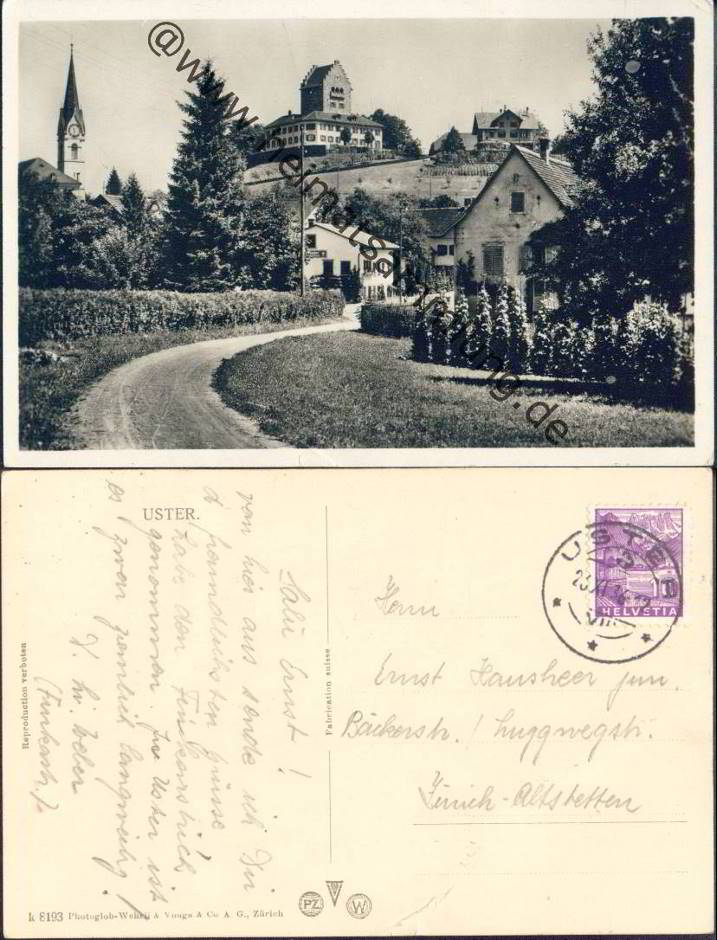 @www.heimatsammlung.de
USTER.
Salü Ernst!
von hier aus sende ich Dir
d freundlichsten Grüsse
habe den
genommen. In Uster ist
es zwar ziemlich langweilig!
Hr. Weber
Fabrication suisse
Reproduction verboten
USTER
23.
VIII
HELVETIA
Herrn
Ernst Hausheer jun.
Bäckerstr. / Luggwegstr.
Zürich-Altstetten
k 8193 Photoglob-Wehrli & Vouga & Co A. G., Zürich
PZ
W